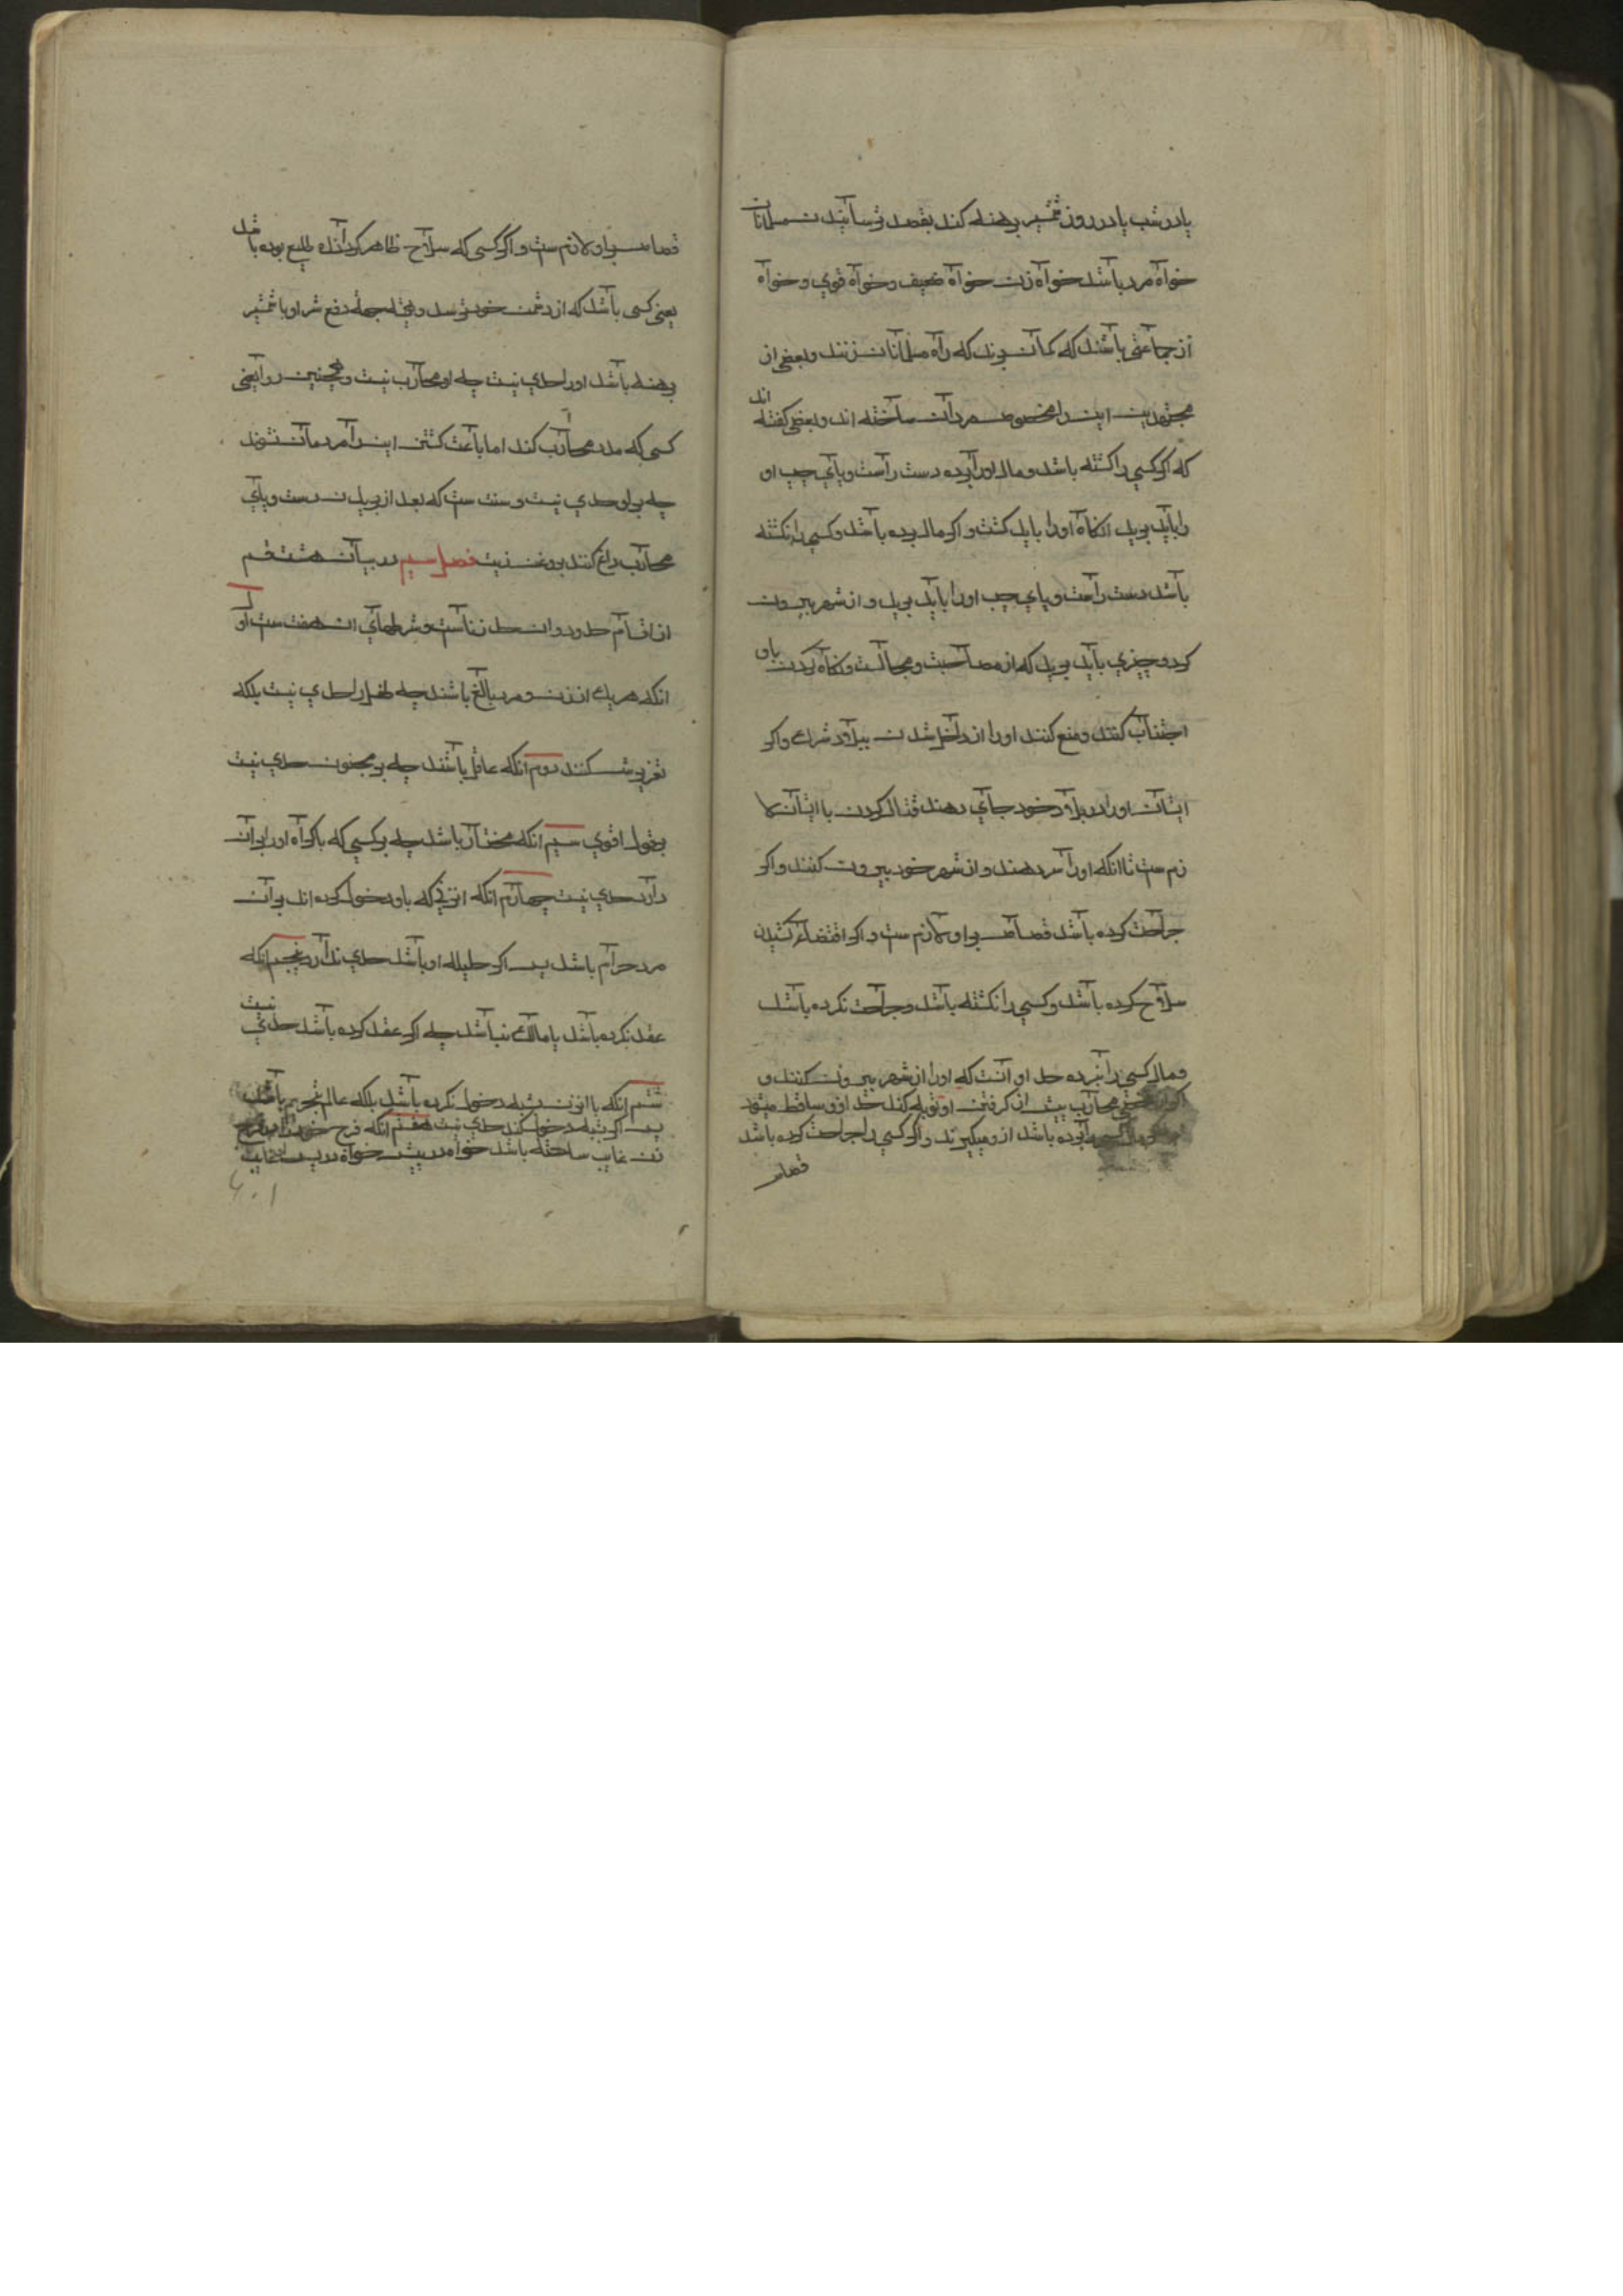 یا در شب یا در روز شمشیر برهنه کند بقصد ترسانیدن مسلمانان
خواه مرد باشد خواه زن خواه ضعیف و خواه قوی و خواه
از جماعتی باشند که گمان برند که راه مسلمانان زنند و بعضی از
مجتهدین این را مخصوص مردان ساخته اند و بعضی گفته اند
که اگر کسی را کشته باشد و مال او را برده دست راست و پای چپ او
را باید برید انگاه او را باید کشت و اگر مال برده باشد و کسی را نکشته
باشد دست راست و پای چپ او را باید برید و از شهر بیرون
کرد و چیزی باید برید که از مصاحبت و مجالست و نکاه کردن باو
اجتناب کنند و منع کنند او را از داخل شدن ببلاد شرک و اگر
ایشان او را در بلاد خود جای دهند قتال کردن با ایشان لا
زم ست تا انکه او را سر دهند و از شهر خود بیرون کنند و اگر
جراحت کرده باشد قصاص بر او لازم ست و اگر اقتضاء کشیدن
سلاح کرده باشد و کسی را نکشته باشد و جراحت نکرده باشد
و مال کسی را نبرده حد او آنست که او را از شهر بیرون کنند و
اگر محارب پیش از گرفتن او توبه کند حد ازو ساقط میشود
برده باشد ازو میگیرند و اگر کسی را جراحت کرده باشد
قصاص
قصاص بر او لازم ست و اگر کسی که سلاح ظاهر گرداند طلیع بوده باشد
یعنی کسی باشد که از دشمن خود ترسد و بجهة دفع شر او با شمشیر
برهنه باشد او را حدی نیست چه او محارب نیست و همچنین روا یعنی
کسی که مدد محارب کند اما باعث کشتن این را مردمان نشوند
چه بر او حدی نیست و سنت ست که بعد از برید ن دست و پای
محارب داغ کنند بروغن زیت فصل سیم در بیان هشتم قسم
از اقسام حدود و ان حد زناست و شرطهای ان هفت ست اول
انکه هر یک از زن و مرد بالغ باشند چه طفل را حدی نیست بلکه
تعزیرش کنند دوم انکه عاقل باشند چه بر مجنون حدی نیست
بقول اقوی سیم انکه مختار باشد چه بر کسی که باکراه او را بر ان
دارند حدی نیست چهارم انکه ان زنی که باو دخول کرده اند بر ان
مرد حرام باشد پس اگر حلیله او باشد حدی ندارد پنجم انکه
عقد نکرده باشد یا مالک نباشد چه اگر عقد کرده باشد حدی نیست
ششم انکه با ان زن بشبه دخول نکرده باشد بلکه عالم بتحریم باشد
پس اگر بشبه دخول کند حدی نیست هفتم انکه فرج خود را در فرج
زن غایب ساخته باشد خواه در پیش خواه در پس
۶۰۱